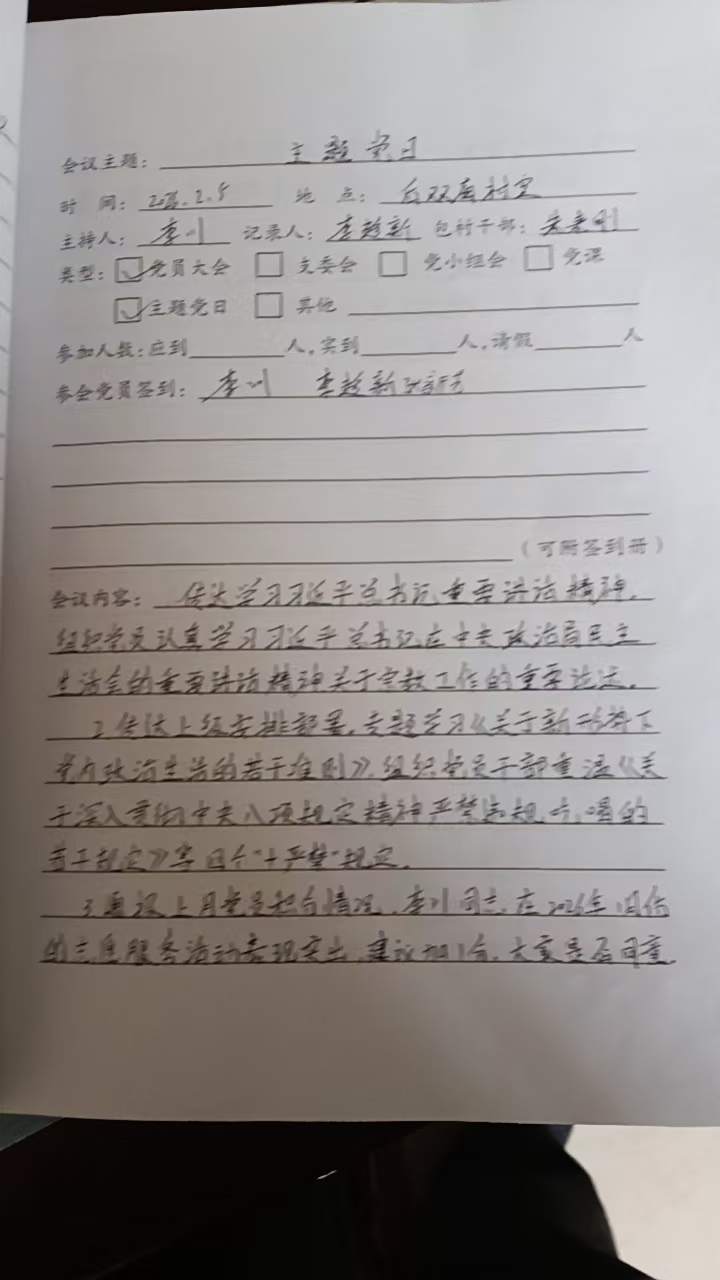 会议主题： 主题党日
时 间： 2026.2.5 地 点： 后双庙村室
主持人： 李川 记录人： 李趁新 包村干部：
类型： ☑党员大会 □ 支委会 □ 党小组会 □ 党课
☑主题党日 □ 其他
参加人数：应到 人，实到 人，请假 人
参会党员签到： 李川 李趁新
（可附签到册）
会议内容： 传达学习习近平总书记重要讲话精神，
组织党员认真学习习近平总书记在中央政治局民主
生活会的重要讲话精神关于宗教工作的重要论述。
2.传达上级安排部署，专题学习《关于新形势下
党内政治生活的若干准则》，组织党员干部重温《关
于深入贯彻中央八项规定精神严禁违规吃喝的
若干规定》等四个“十严禁”规定。
3.面议上月党员积分情况，李川同志，在2026年1月份
的志愿服务活动表现突出，建议加1分，大家是否同意，